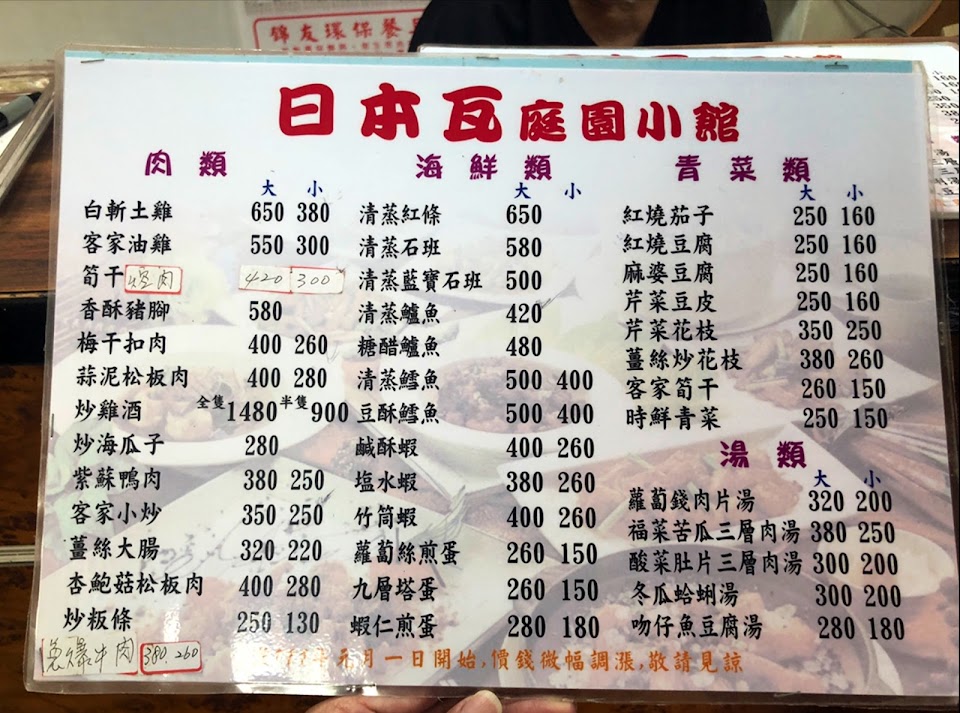 錦友環保餐具
日本瓦庭園小館
肉類
大 小
白斬土雞 650 380
客家油雞 550 300
筍干控肉 420 300
香酥豬腳 580
梅干扣肉 400 260
蒜泥松板肉 400 280
炒雞酒 全隻1480 半隻900
炒海瓜子 280
紫蘇鴨肉 380 250
客家小炒 350 250
薑絲大腸 320 220
杏鮑菇松板肉 400 280
炒粄條 250 130
蔥爆牛肉 380.260
海鮮類
大 小
清蒸紅條 650
清蒸石班 580
清蒸藍寶石班 500
清蒸鱸魚 420
糖醋鱸魚 480
清蒸鱈魚 500 400
豆酥鱈魚 500 400
鹹酥蝦 400 260
塩水蝦 380 260
竹筒蝦 400 260
蘿蔔絲煎蛋 260 150
九層塔蛋 260 150
蝦仁煎蛋 280 180
青菜類
大 小
紅燒茄子 250 160
紅燒豆腐 250 160
麻婆豆腐 250 160
芹菜豆皮 250 160
芹菜花枝 350 250
薑絲炒花枝 380 260
客家筍干 260 150
時鮮青菜 250 150
湯類
大 小
蘿蔔錢肉片湯 320 200
福菜苦瓜三層肉湯 380 250
酸菜肚片三層肉湯 300 200
冬瓜蛤蜊湯 300 200
吻仔魚豆腐湯 280 180
年元月一日開始,價錢微幅調漲,敬請見諒